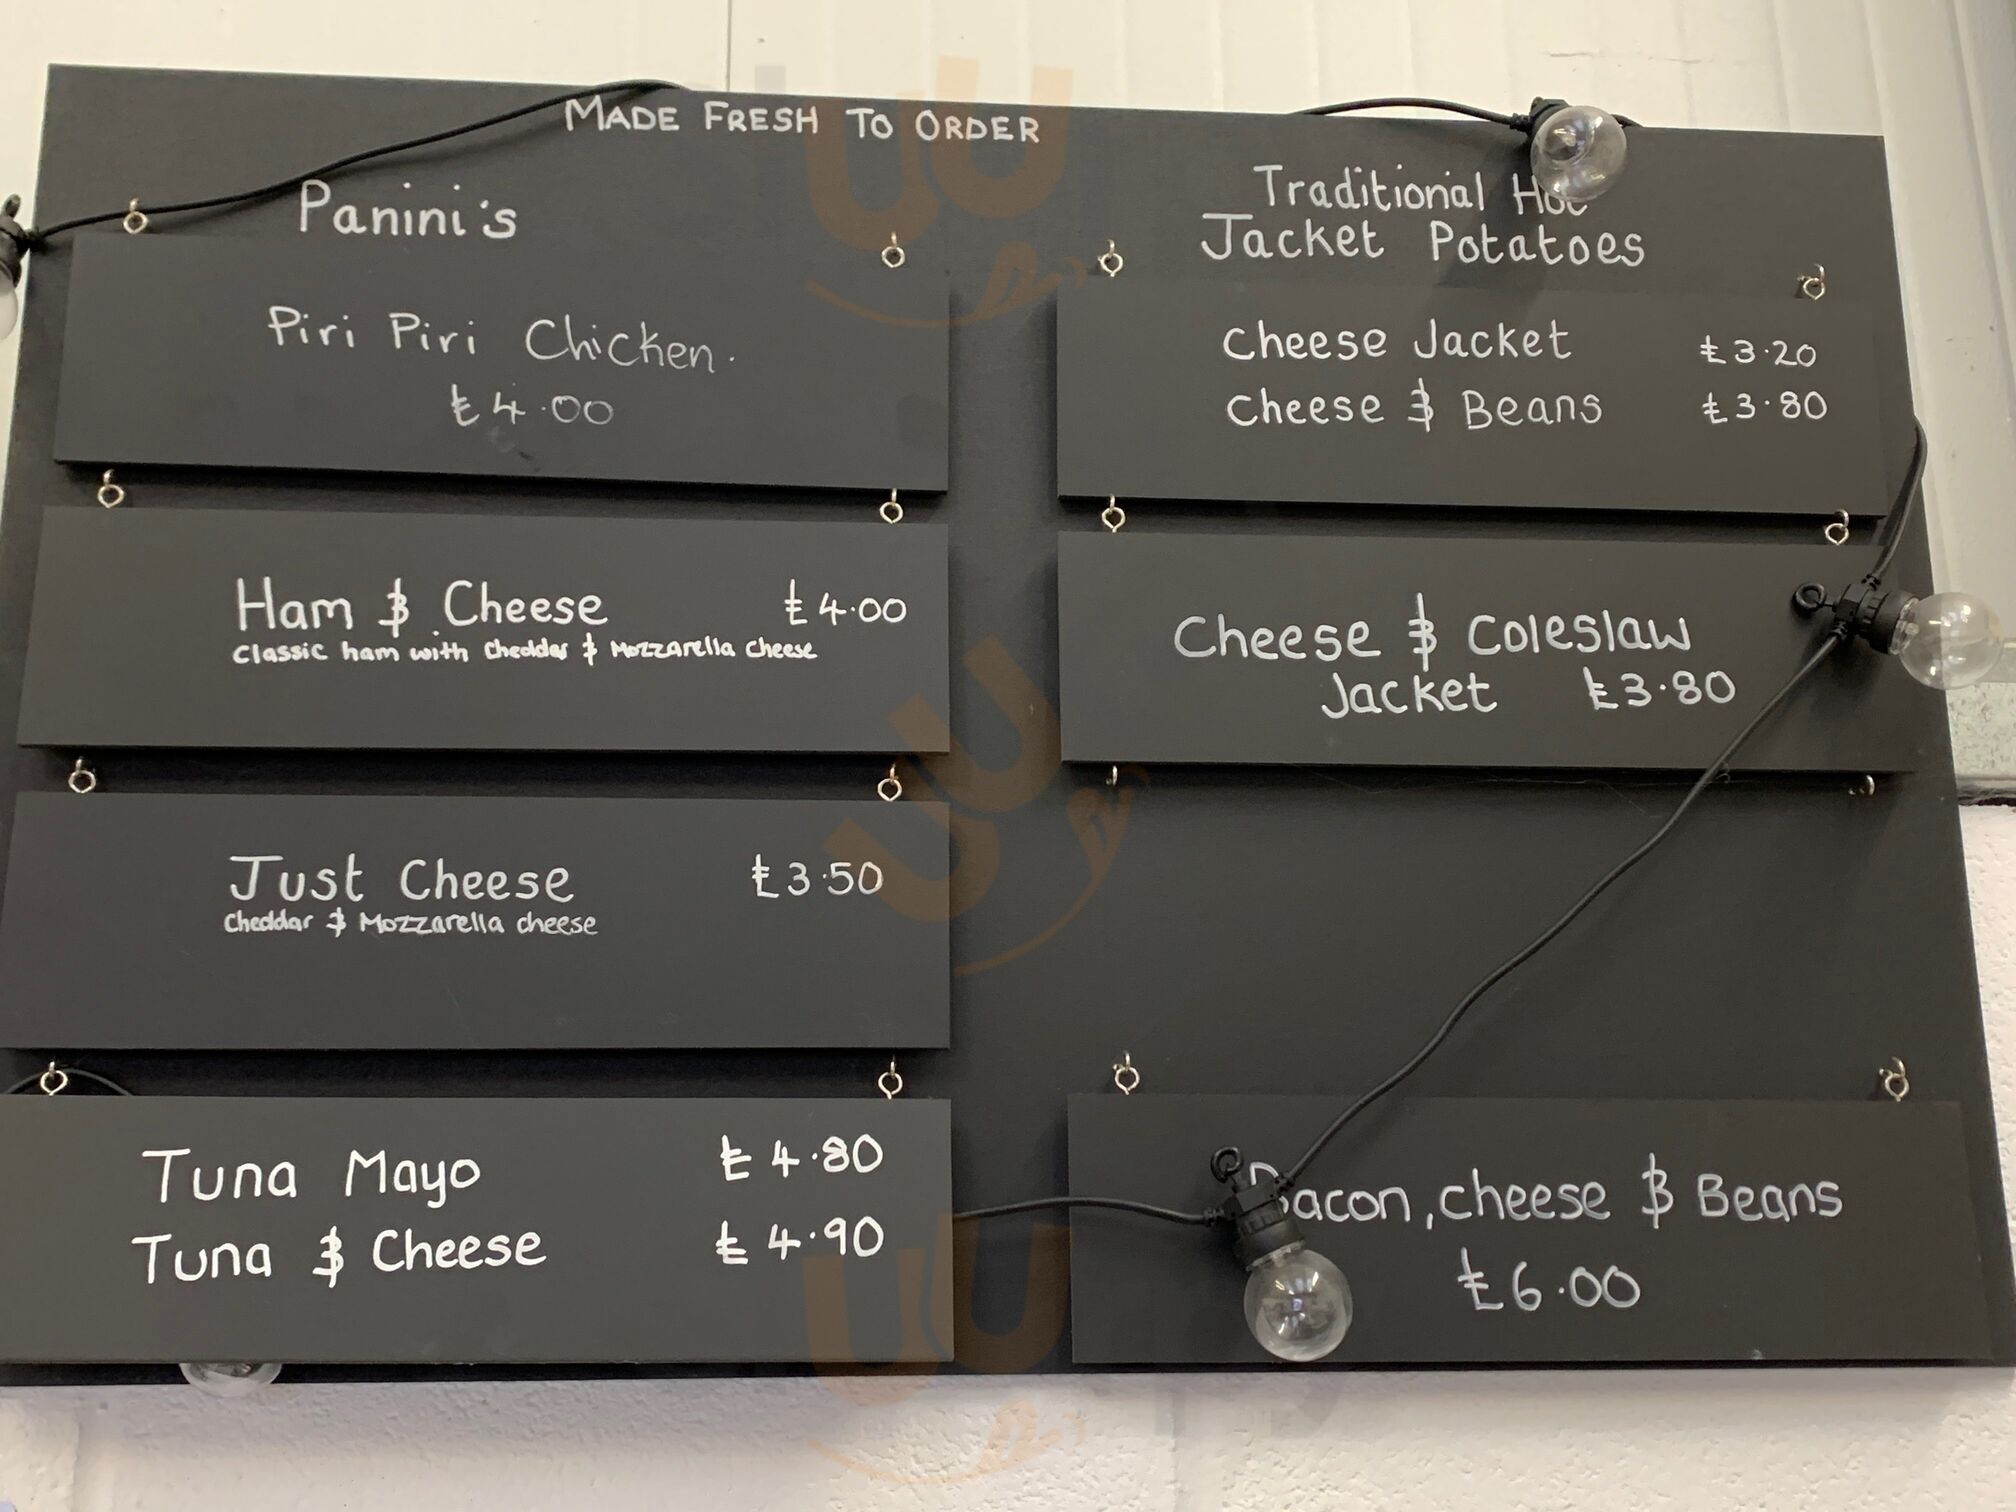 MADE FRESH TO ORDER
Panini's
Piri Piri Chicken.
£4.00
Ham & Cheese £4.00
Classic ham with Cheddar & Mozzarella cheese
Just Cheese £3.50
Cheddar & Mozzarella cheese
Tuna Mayo £4.80
Tuna & Cheese £4.90
Traditional Hot
Jacket Potatoes
Cheese Jacket £3.20
Cheese & Beans £3.80
Cheese & Coleslaw
Jacket £3.80
Bacon, cheese & Beans
£6.00